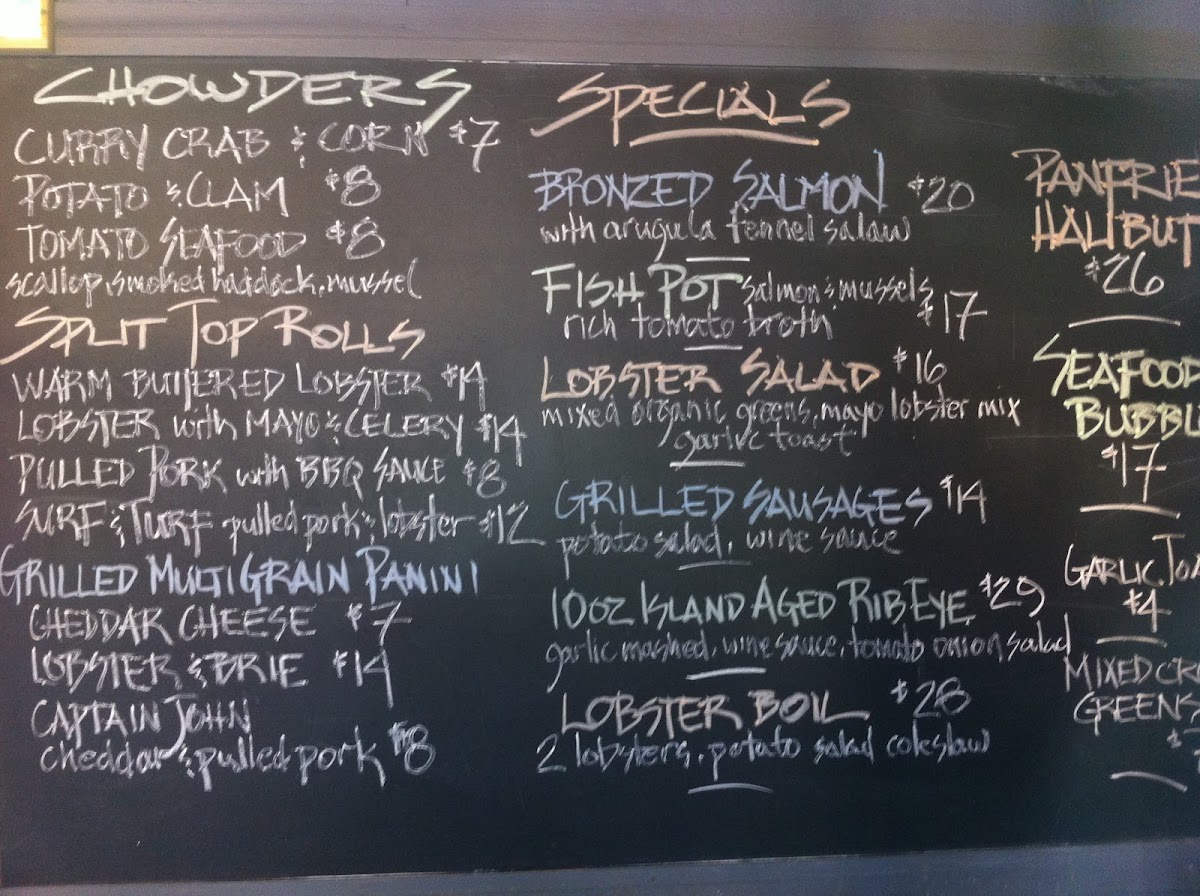 CHOWDERS
CURRY CRAB & CORN $7
POTATO & CLAM $8
TOMATO SEAFOOD $8
scallop, smoked haddock, mussel
SPLIT TOP ROLLS
WARM BUTTERED LOBSTER $14
LOBSTER with MAYO & CELERY $14
PULLED PORK with BBQ SAUCE $8
SURF & TURF pulled pork & lobster $12
GRILLED MULTIGRAIN PANINI
CHEDDAR CHEESE $7
LOBSTER & BRIE $14
CAPTAIN JOHN
cheddar & pulled pork $8
SPECIALS
BRONZED SALMON $20
with arugula fennel salaw
FISH POT salmon & mussels,
rich tomato broth $17
LOBSTER SALAD $16
mixed organic greens, mayo lobster mix
garlic toast
GRILLED SAUSAGES $14
potato salad, wine sauce
10oz ISLAND AGED RIBEYE $29
garlic mashed, wine sauce, tomato onion salad
LOBSTER BOIL $28
2 lobsters, potato salad coleslaw
PANFRIE
HALIBUT
$26
SEAFOOD
BUBBL
$17
GARLIC TOA
$4
MIXED CR
GREENS